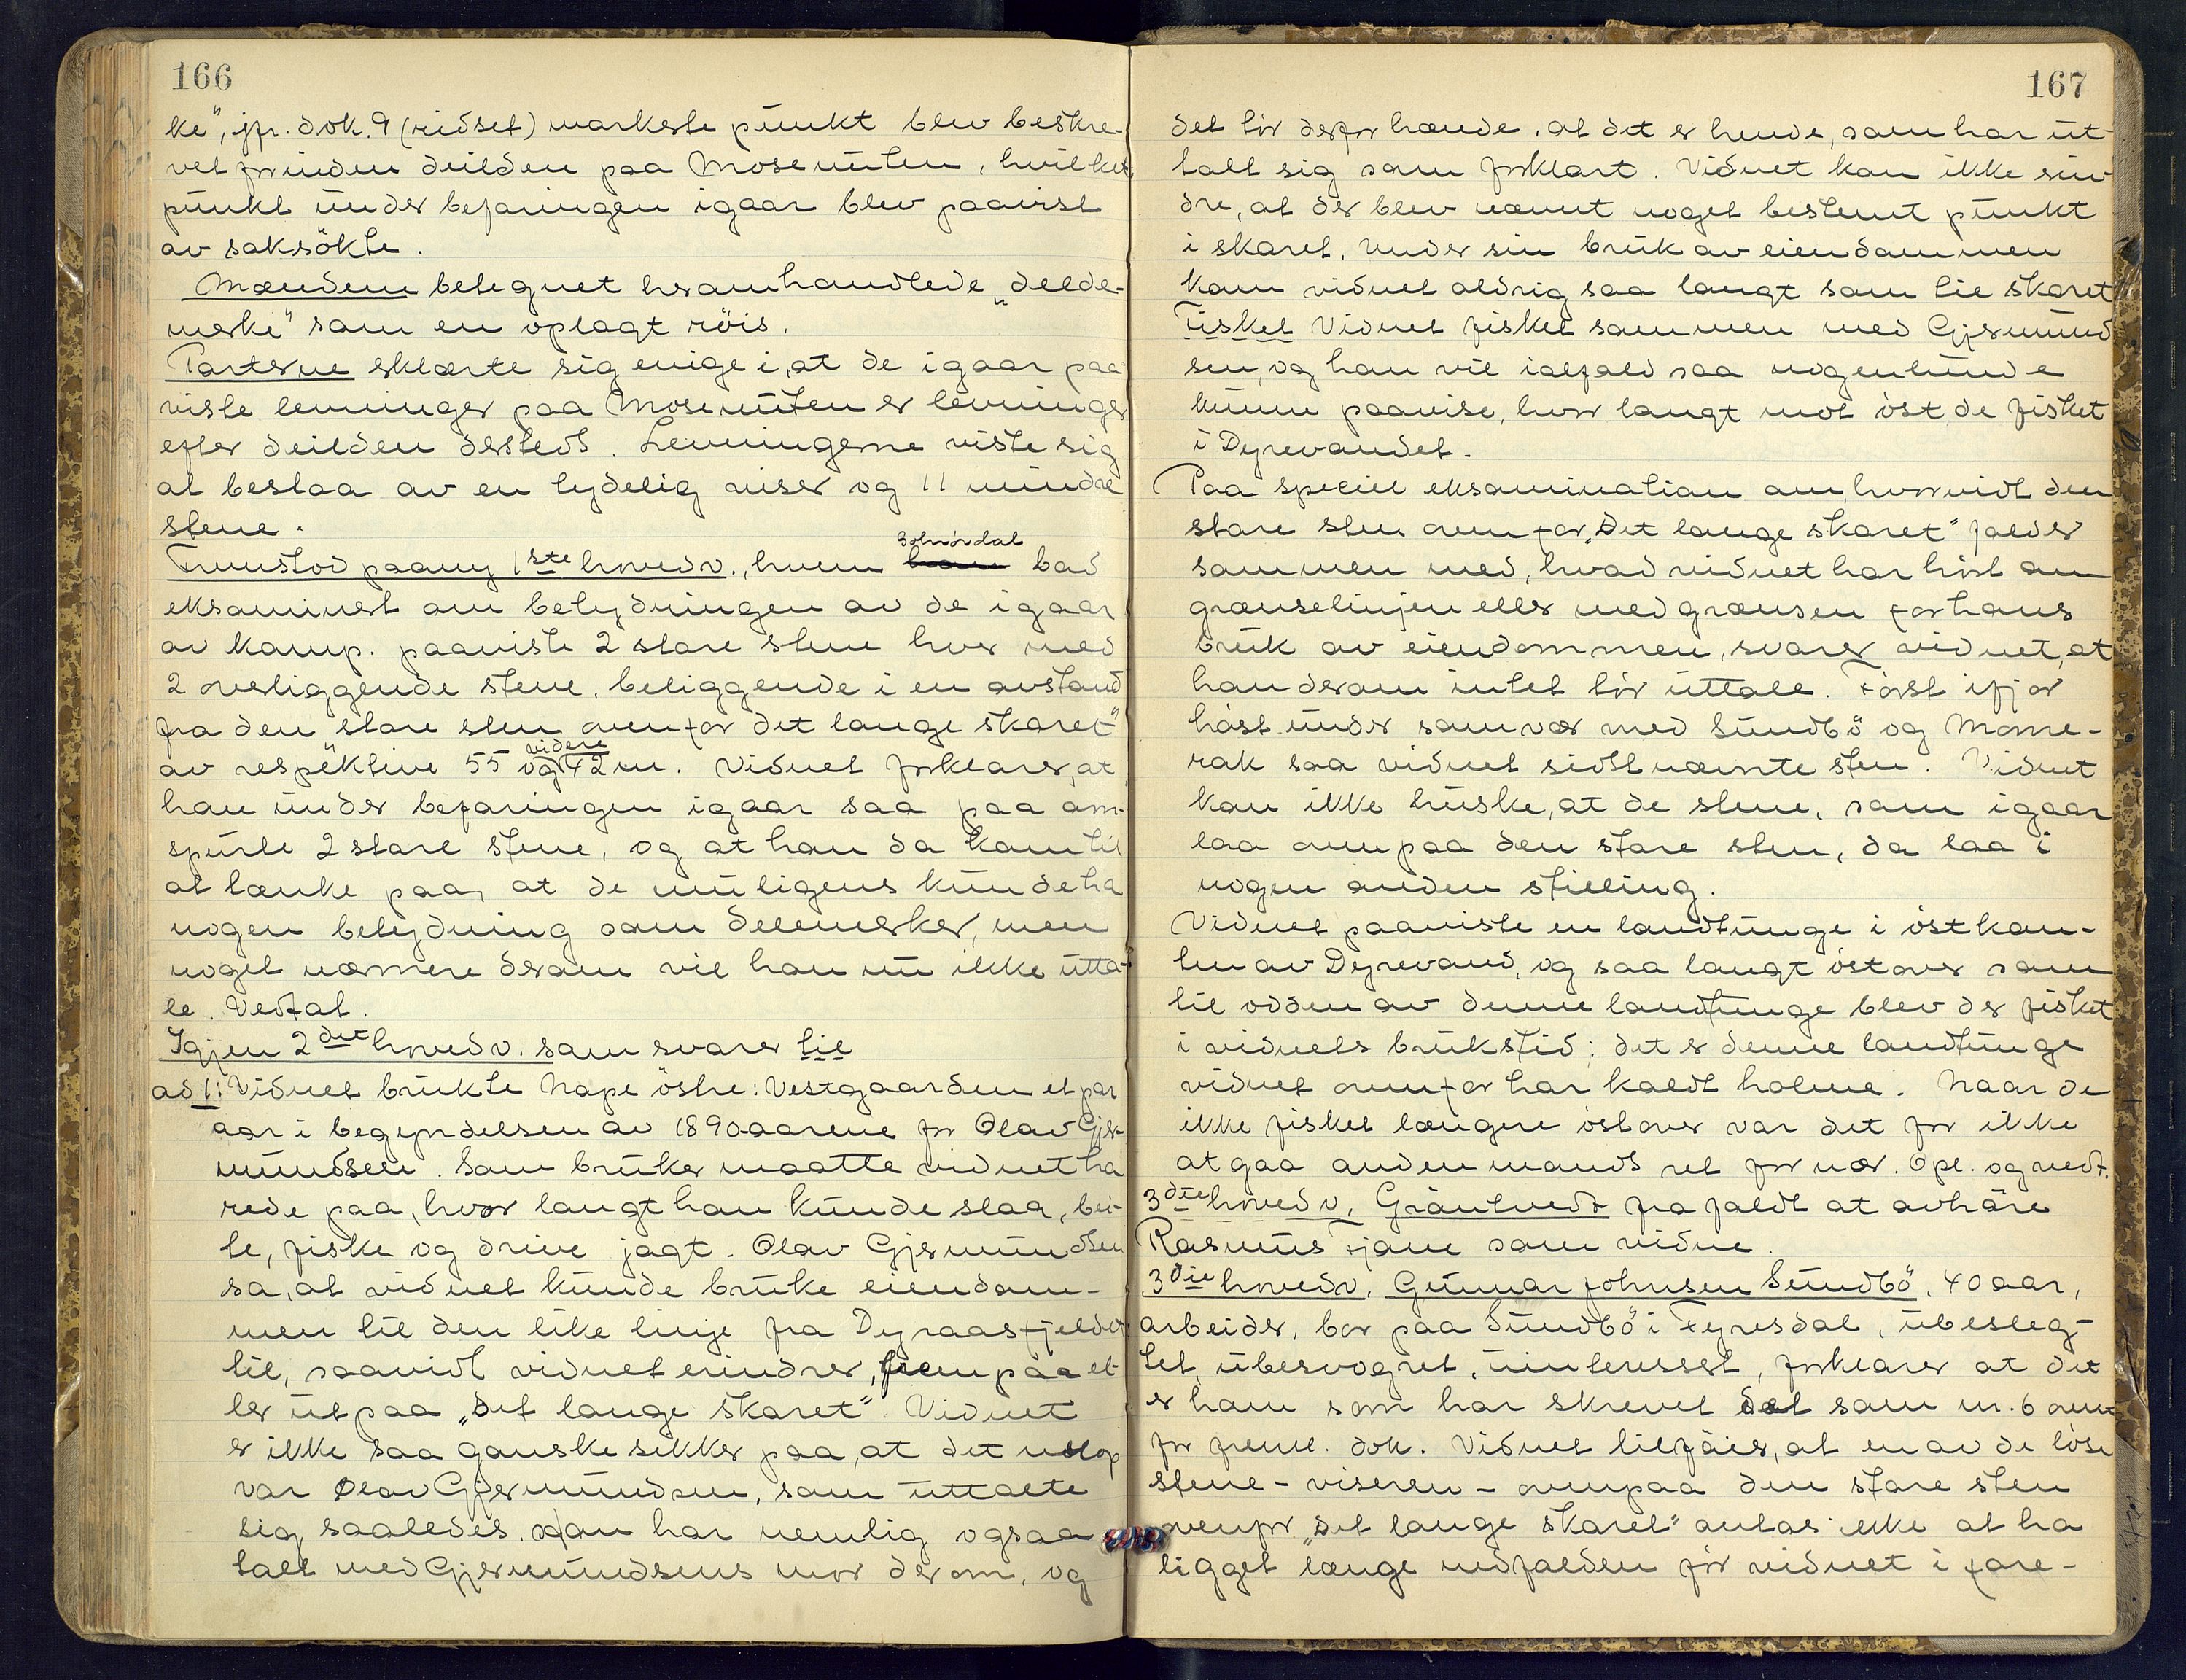 166
ke", jfr. dok. 9 (ridset) markerte punkt blev beskre-
vet forinden deilden paa Mosenuten, hvilket
punkt under befaringen igaar blev paavist
av saksökte.
Mændene betegnet heromhandlede „deilde-
merke" som en oplagt röis.
Parterne erklærte sig enige i, at de igaar paa-
viste levninger paa Mosenuten er levninger
efter deilden dersteds. Levningerne viste sig
at bestaa av en tydelig viser og 11 mindre
stene.
Fremstod paany 1ste hovedv., hvem Solnördal bad
eksaminert om betydningen av de igaar
av komp. paaviste 2 store stene hver med
2 overliggende stene, beliggende i en avstand
fra den store sten ovenfor „det lange skaret"
av respektive 55 og videre 42 m. Vidnet forklarer, at
han under befaringen igaar saa paa om-
spurte 2 store stene, og at han da kom til
at tænke paa, at de muligens kunde ha
nogen betydning som delemerker, men
noget nærmere derom vil han nu ikke utta-
le. Vedtat.
Igjen 2det hovedv. som svarer til
ad 1: Vidnet brukte Nape östre: Vestgaarden et par
aar i begyndelsen av 1890-aarene for Olav Gjer-
mundsen. Som bruker maatte vidnet ha
rede paa, hvor langt han kunde slaa, bei-
te, fiske og drive jagt. Olav Gjermundsen
sa, at vidnet kunde bruke eiendom-
men til den like linje fra Dyraasfjeldet
til, saavidt vidnet erindrer, frem paa el-
ler ut paa „det lange skaret". Vidnet
er ikke saa ganske sikker paa, at det netop
var Olav Gjermundsen, som uttalte
sig saaledes. Han har nemlig ogsaa
talt med Gjermundsens mor derom, og
167
det tör derfor hænde, at det er hende, som har ut-
talt sig som forklart. Vidnet kan ikke erin-
dre, at der blev nævnt noget bestemt punkt
i skaret. Under sin bruk av eiendommen
kom vidnet aldrig saa langt som til skaret.
Fisket Vidnet fisket sammen med Gjermund-
sen, og han vil ialfald saa nogenlunde
kunne paavise, hvor langt mot öst de fisket
i Dyrevandet.
Paa speciel eksamination om, hvorvidt den
store sten ovenfor „Det lange skaret" falder
sammen med, hvad vidnet har hört om
grænselinjen eller med grænsen for hans
bruk av eiendommen, svarer vidnet, at
han derom intet tör uttale. Först ifjor
höst under samvær med Sundbö og Mome-
rak saa vidnet sidstnævnte sten. Vidnet
kan ikke huske, at de stene, som igaar
laa ovenpaa den store sten, da laa i
nogen anden stilling.
Vidnet paaviste en landtunge i östkan-
ten av Dyrevand, og saa langt östover som
til odden av denne landtunge blev der fisket
i vidnets brukstid; det er denne landtunge
vidnet ovenfor har kaldt holme. Naar de
ikke fisket længere östover var det for ikke
at gaa anden mands ret for nær. Opl. og vedt.
3die hovedv. Gräntvedt frafaldt at avhöre
Rasmus Fjone som vidne.
3die hovedv. Gunnar Johnsen Sundbö, 40 aar,
arbeider, bor paa Sundbö i Fyresdal, ubesleg-
tet, ubesvogret, uinteressert, forklarer at det
er ham som har skrevet det som nr. 6 oven-
for freml. dok. Vidnet tilföier, at en av de löse
stene - viseren - ovenpaa den store sten
ovenfor „det lange skaret" antas ikke at ha
ligget længe nedfalden för vidnet i fore-